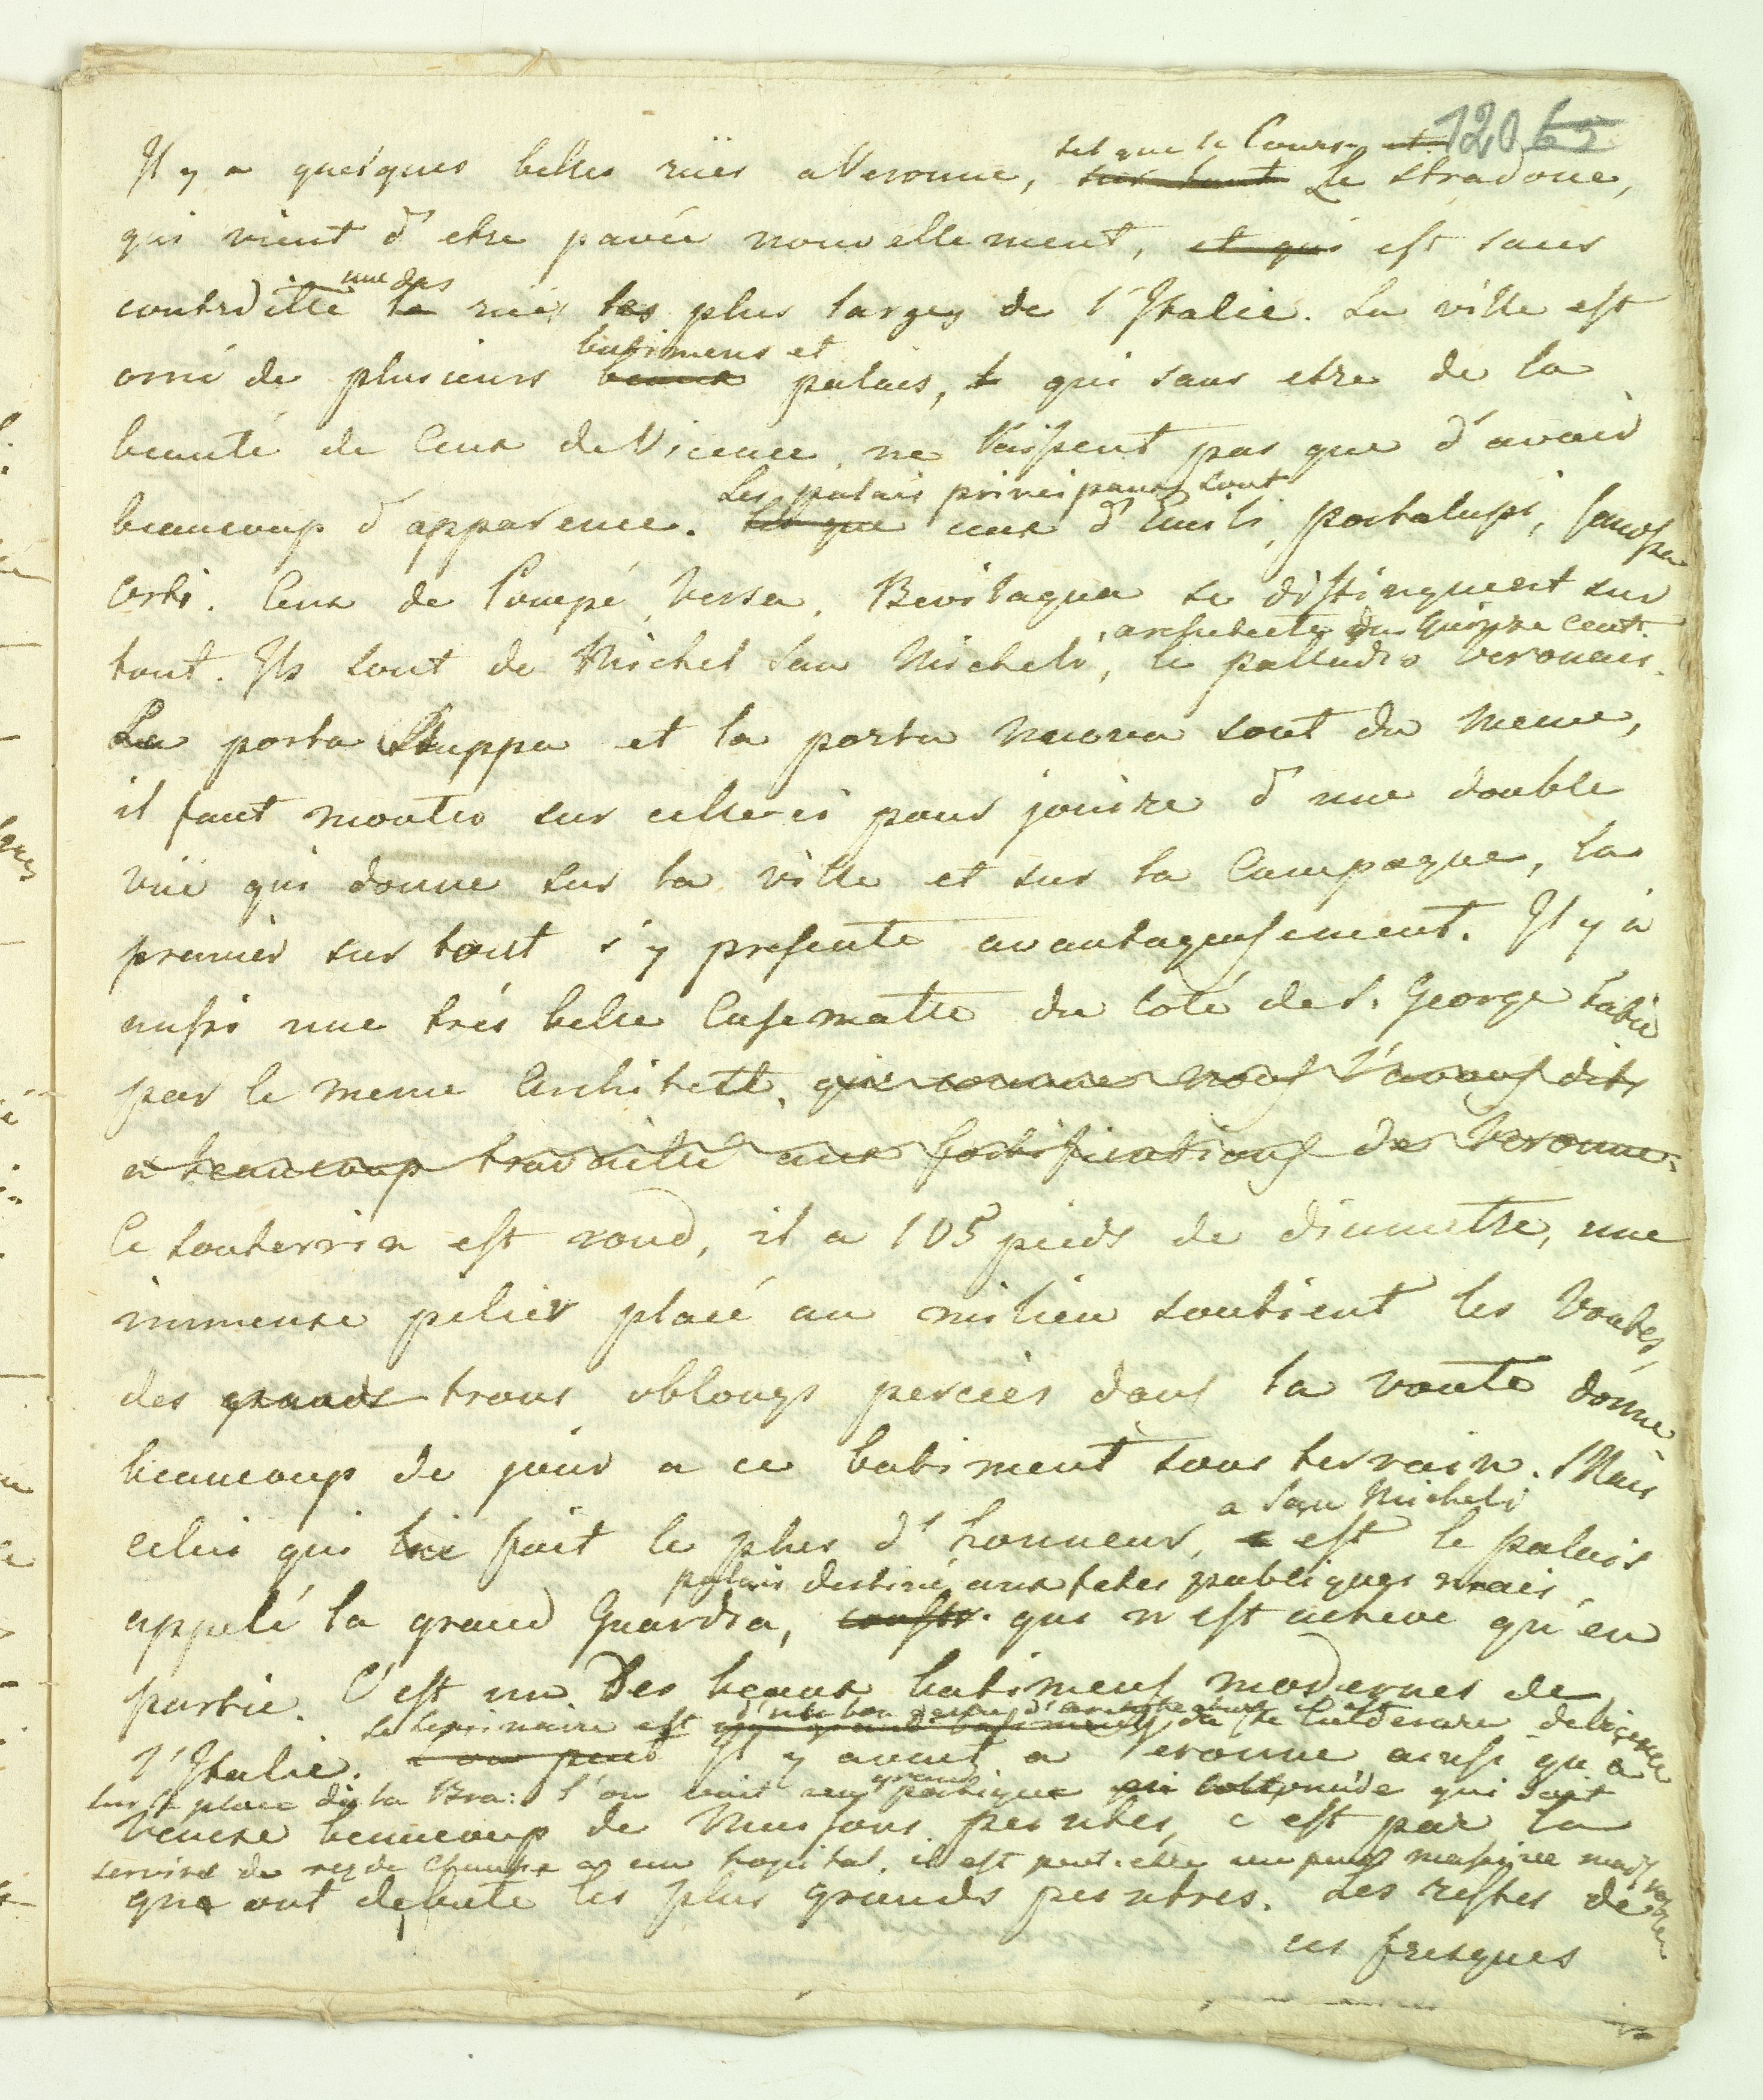 120 65
tel que le Cours, et
Il y a quelques belles rües a Veronne, sur tout Le stradone,
qui vient d'etre pavée nouvellement, et qui est sans
une des
contreditte la rües les plus larges de l'Italie. La ville est
batimens et
orné de plusieurs beaux palais, qui sans etre de la
beauté de Ceux de Vicence, ne laissent pas que d'avoir
Les palais principaux sont
beaucoup d'apparence. tel que ceux d'Emili, portalupi,
Ceux de Pompé, Versa, Bevilaqua se distinguent sur
, architecte du Quinze Cent.
tout. Ils sont de Michel San Micheli, le palladio Veronais.
La porta Stuppa et la porta nuova sont du meme,
il faut monter sur celle-ci pour jouire d'une double
vüe qui donne sur la ville et sur la Campagne, la
premier sur tout s'y presente avantageusement. Il y a
aussi une trés belle Casematte du coté de S. George batie
par le meme Architett, qui comme nous l'avons dits
a beaucoup travaillé aux fortifications de Veronne.
Ce souterrin est rond, il a 105 pieds de diametre, une
immense pelier placé au milieu soutient les Voutes,
des grands trous oblongs percées dans la voute donne
beaucoup de jour a ce batiment sous terrain. Mais
a San Micheli
celui qui lui fait le plus d'honneur, c est le palais
palais destiné aux fetes publiques mais
appelé la grand Guardia, constr. qui n'est acheve qu'en
partie. C'est un Des beaux batimens modernes de
Le Seminaire est un grand batiment, d'un bon genre d'architecture, du Calderare de Vicence
l'Italie. Il y avait a Veronne ainsi qu'a
Sur la place de la Bra: l'on voit un grand portique en collonnide qui doit
Venese beaucoup de Maisons peintes, c est par la
servire de rez de Chausse a un hopital, il est peut-etre un peu massive mais
que ont debuté les plus grands peintres. Les restes de
ces fresques